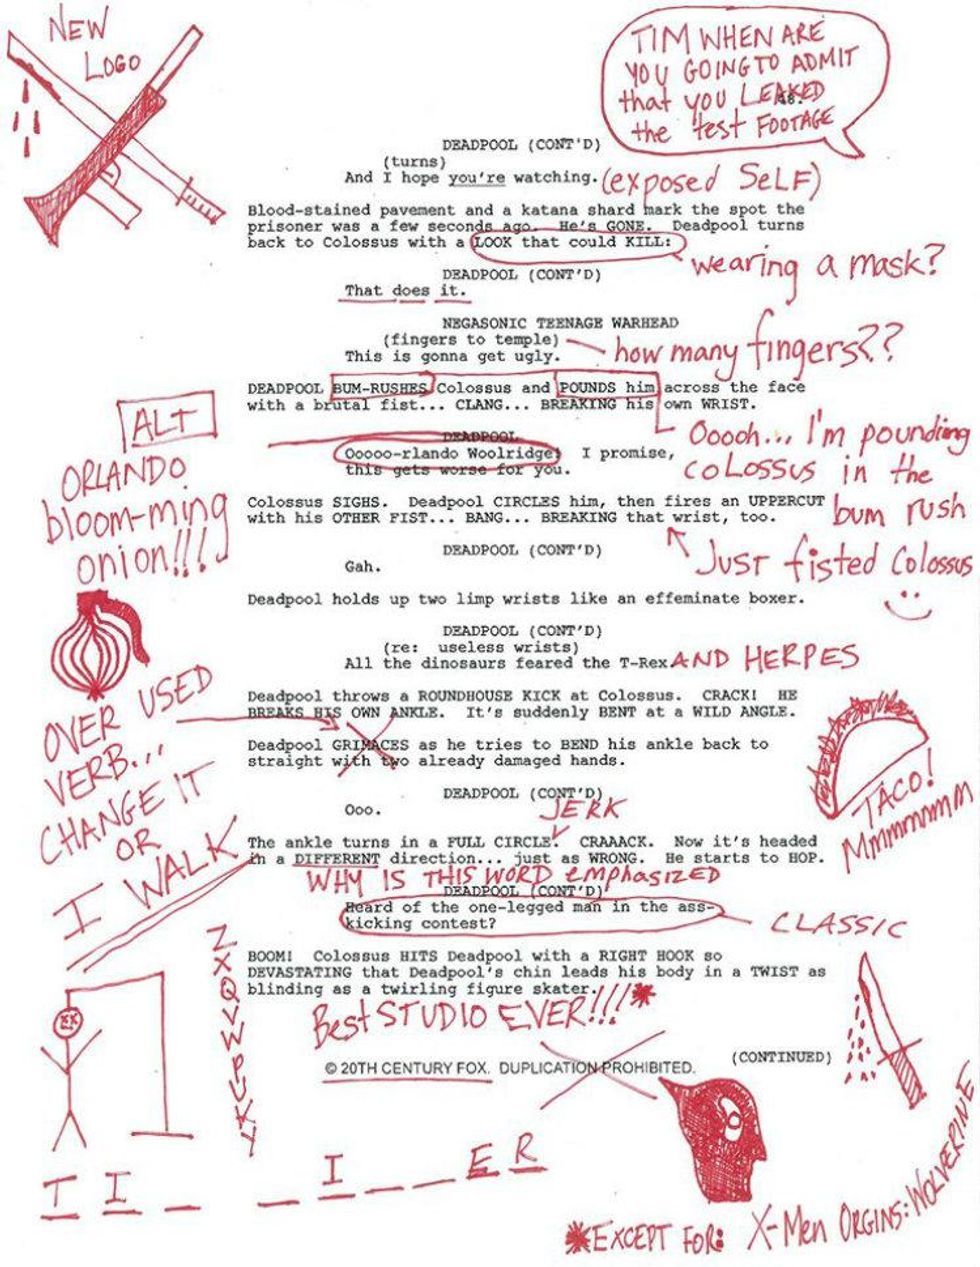 NEW
LOGO
TIM WHEN ARE
YOU GOING TO ADMIT
that you LEAKED
48.
the test FOOTAGE
DEADPOOL (CONT'D)
(turns)
And I hope you're watching. (exposed SeLF)
Blood-stained pavement and a katana shard mark the spot the
prisoner was a few seconds ago. He's GONE. Deadpool turns
back to Colossus with a LOOK that could KILL:
wearing a mask?
DEADPOOL (CONT'D)
That does it.
NEGASONIC TEENAGE WARHEAD
(fingers to temple)
how many fingers??
This is gonna get ugly.
DEADPOOL BUM-RUSHES Colossus and POUNDS him across the face
with a brutal fist... CLANG... BREAKING his own WRIST.
ALT
ORLANDO
bloom-ming
onion!!!
DEADPOOL
Ooooo-rlando Woolridge! I promise,
this gets worse for you.
Ooooh... I'm pounding
coLossus in the
bum rush
Colossus SIGHS. Deadpool CIRCLES him, then fires an UPPERCUT
with his OTHER FIST... BANG... BREAKING that wrist, too.
Just fisted Colossus
DEADPOOL (CONT'D)
Gah.
Deadpool holds up two limp wrists like an effeminate boxer.
DEADPOOL (CONT'D)
(re: useless wrists)
All the dinosaurs feared the T-Rex. AND HERPES
OVER USED
VERB...
CHANGE IT
OR
I WALK
Deadpool throws a ROUNDHOUSE KICK at Colossus. CRACK! HE
BREAKS HIS OWN ANKLE. It's suddenly BENT at a WILD ANGLE.
Deadpool GRIMACES as he tries to BEND his ankle back to
straight with two already damaged hands.
TACO!
Mmmmmmm
DEADPOOL (CONT'D)
Ooo.
JERK
The ankle turns in a FULL CIRCLE. CRAAACK. Now it's headed
in a DIFFERENT direction... just as WRONG. He starts to HOP.
WHY IS THIS WORD emphasized
DEADPOOL (CONT'D)
Heard of the one-legged man in the ass-
kicking contest?
CLASSIC
BOOM! Colossus HITS Deadpool with a RIGHT HOOK so
DEVASTATING that Deadpool's chin leads his body in a TWIST as
blinding as a twirling figure skater.
Best STUDIO EVER!!!*
(CONTINUED)
© 20TH CENTURY FOX. DUPLICATION PROHIBITED.
T I _ _ I _ _ E R
*EXCEPT FOR: X-Men ORGINS: WOLVERINE